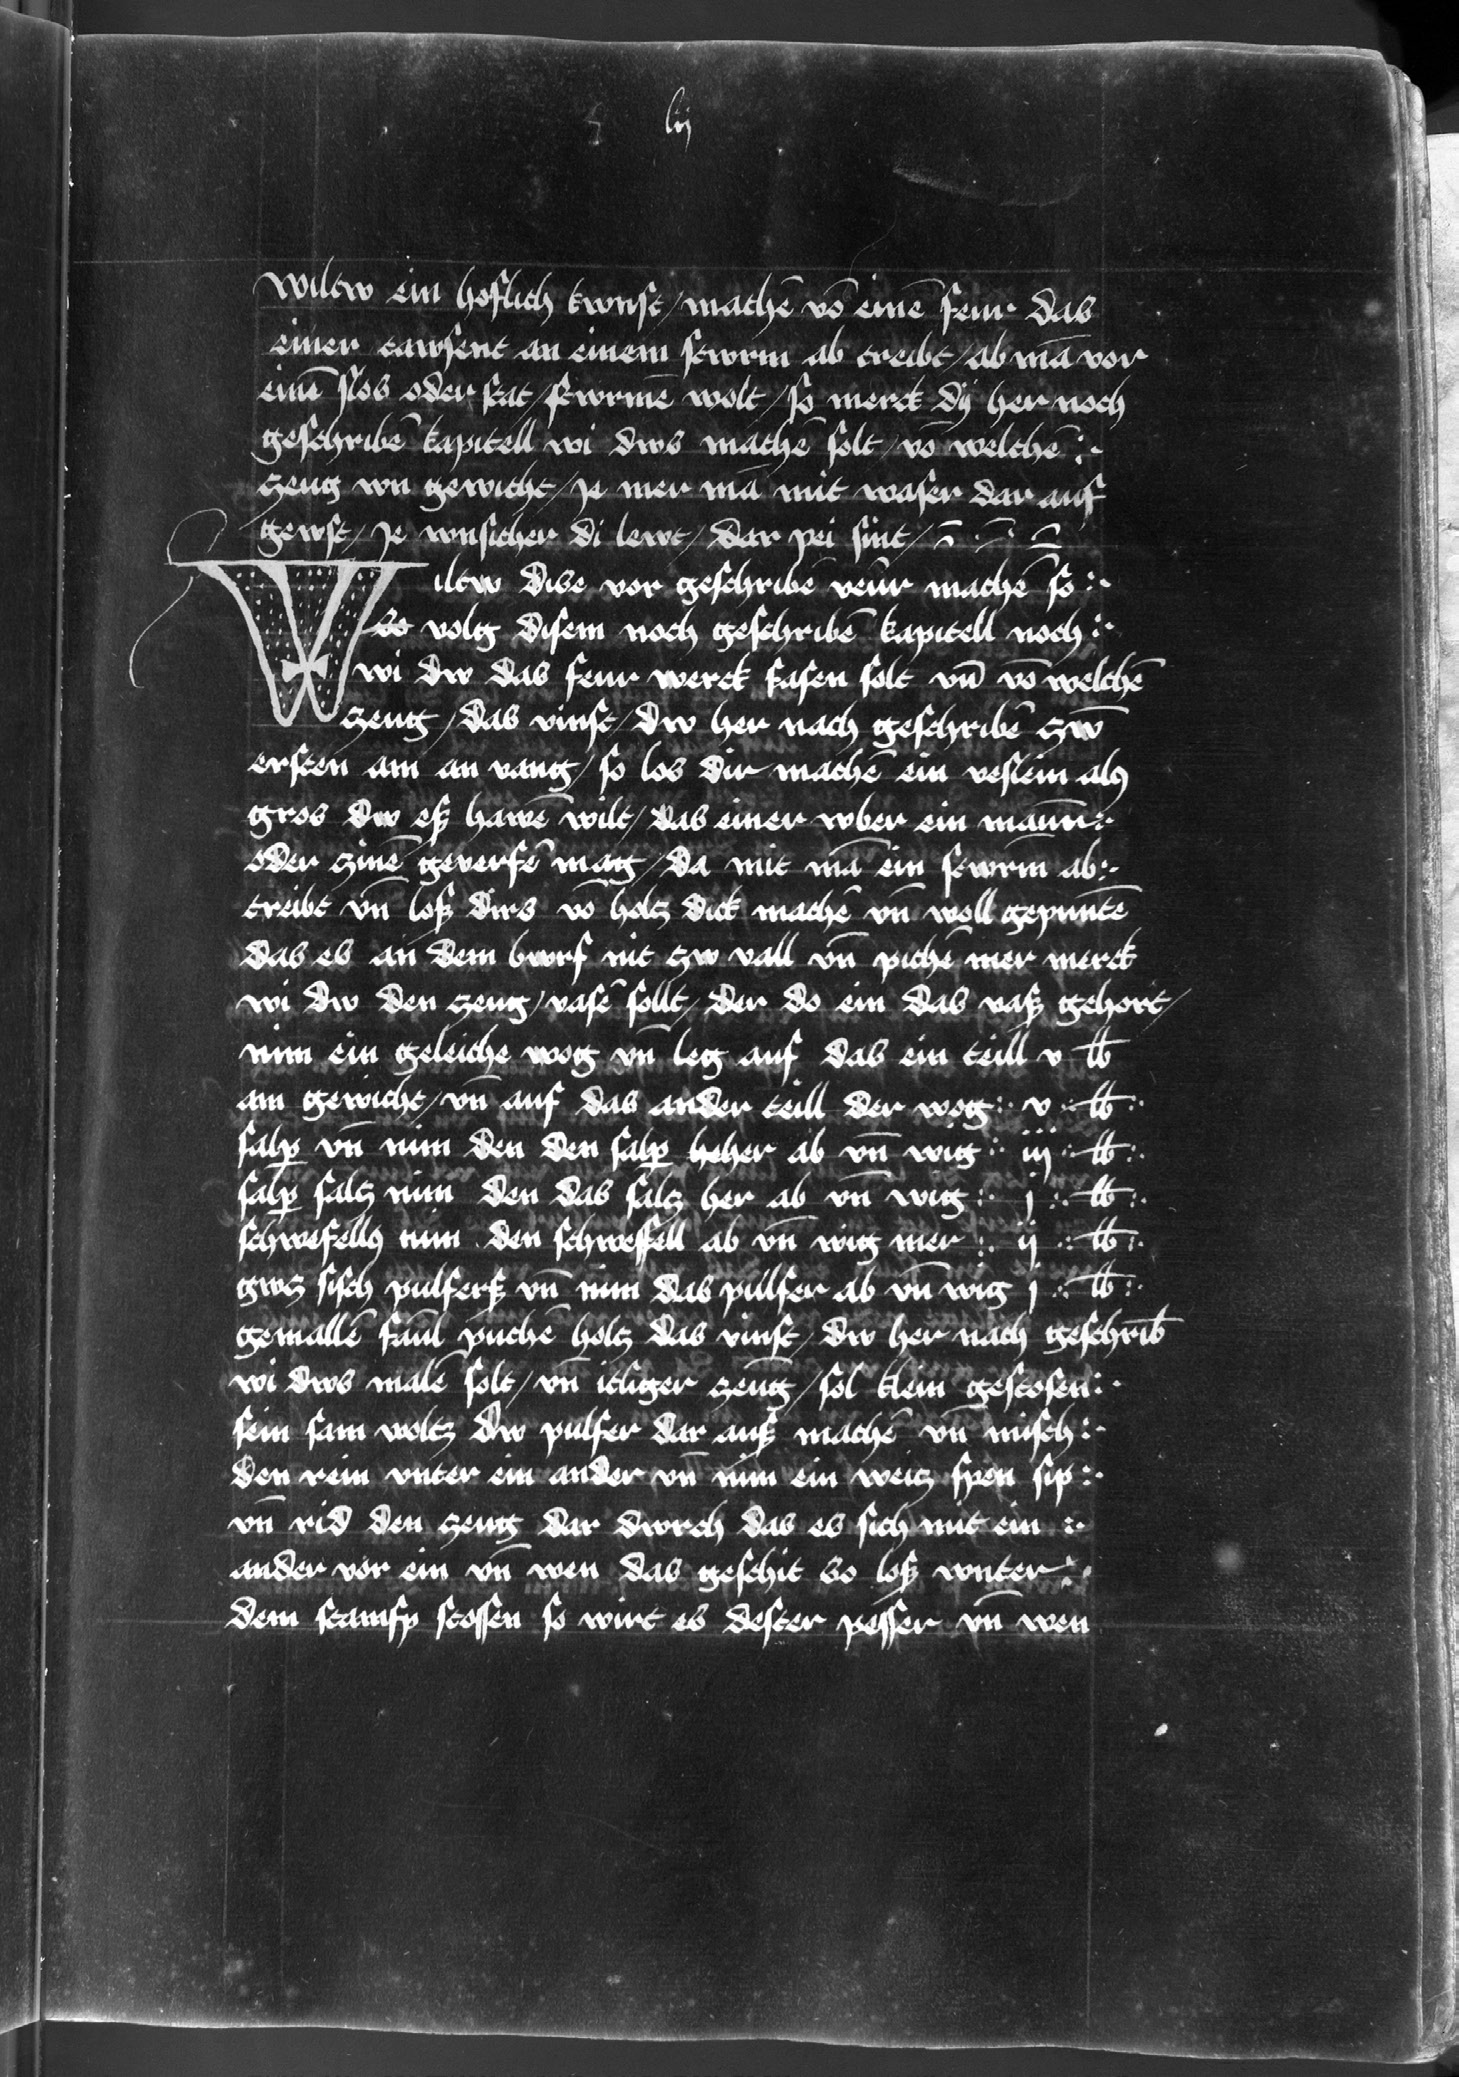 lij
wiltw ein hoflich kwnst / machē vō einē feur das
einer tawsent an einem stwrm ab treibt / ab mā vor
einē slos oder stat / stwrmē wolt / so merck dÿ her noch
geschribē kapitell wi dws machē solt / vō welchē :·
zeug wn gewicht / je mer mā mit waser dar auf
gewst / je wnsicher di lewt / dar pei sint /
Wiltw dise vor geschribē veur machē so :·
so volg disem noch geschribē kapitell noch :·
wi dw das feur werck fasen solt vn̄ vō welchē
zeug / das vinst / dw her nach geschribē zw̄
ersten am an vang / so los dir machē ein veslein als
gros dw eß hawē wilt / das einer wber ein maūr :·
oder zinē geverfē mag / da mit mā ein stwrm ab :·
treibt vn̄ loß dirs vō holtz dick machē vn̄ woll gepuntē
das es an dem bwrf nit zw vall vn̄ pichē mer merck
wi dw den zeug / vasē sollt / der do ein das vaß gehort /
nim ein geleiche wog vn̄ leg auf das ein teill v lb
am gewicht / vn̄ auf das ander teill der wog :· v · lb :·
salꝑ vn̄ nim den den salꝑ heher ab vn̄ wig :· iij · lb :·
salꝑ saltz nim den das saltz her ab vn̄ wig :· j :· lb :·
schwefells nim den schweffell ab vn̄ wig mer :· ij · lb :·
gwtz sisch pulferß vn̄ nim das pullfer ab vn̄ wig j · lb :·
gemallē faul puchē holtz das vinst / dw her nach geschrib̄
wi dws malē solt / vn̄ itliger zeug / sol klein gestosen :·
sein sam woltz dw pulfer dar auß machē vn̄ misch :·
den rein vnter ein ander vn̄ nim ein weitz spen sip :·
vn̄ rid den zeug dar dwrch das es sich mit ein :·
ander vor ein vn̄ wen das geschit so loß wnter :·
dem stampf stossen so wirt es dester pesser vn̄ wen